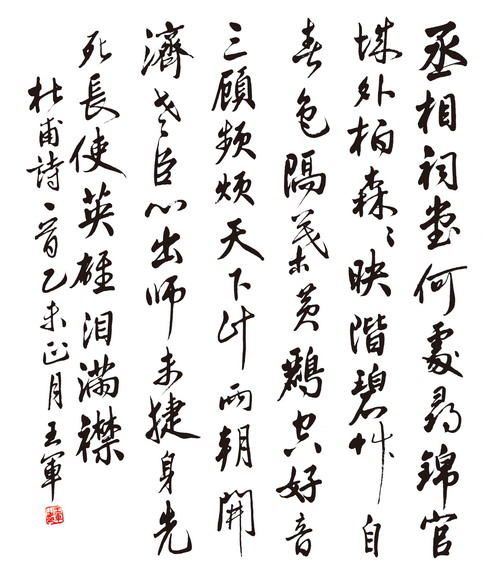 丞相祠堂何處尋錦官
城外柏森々映階碧艸自
春色隔葉黄鸝空好音
三顧頻煩天下計兩朝開
濟老臣心出師未捷身先
死長使英雄泪滿襟
杜甫詩一首乙未正月王軍